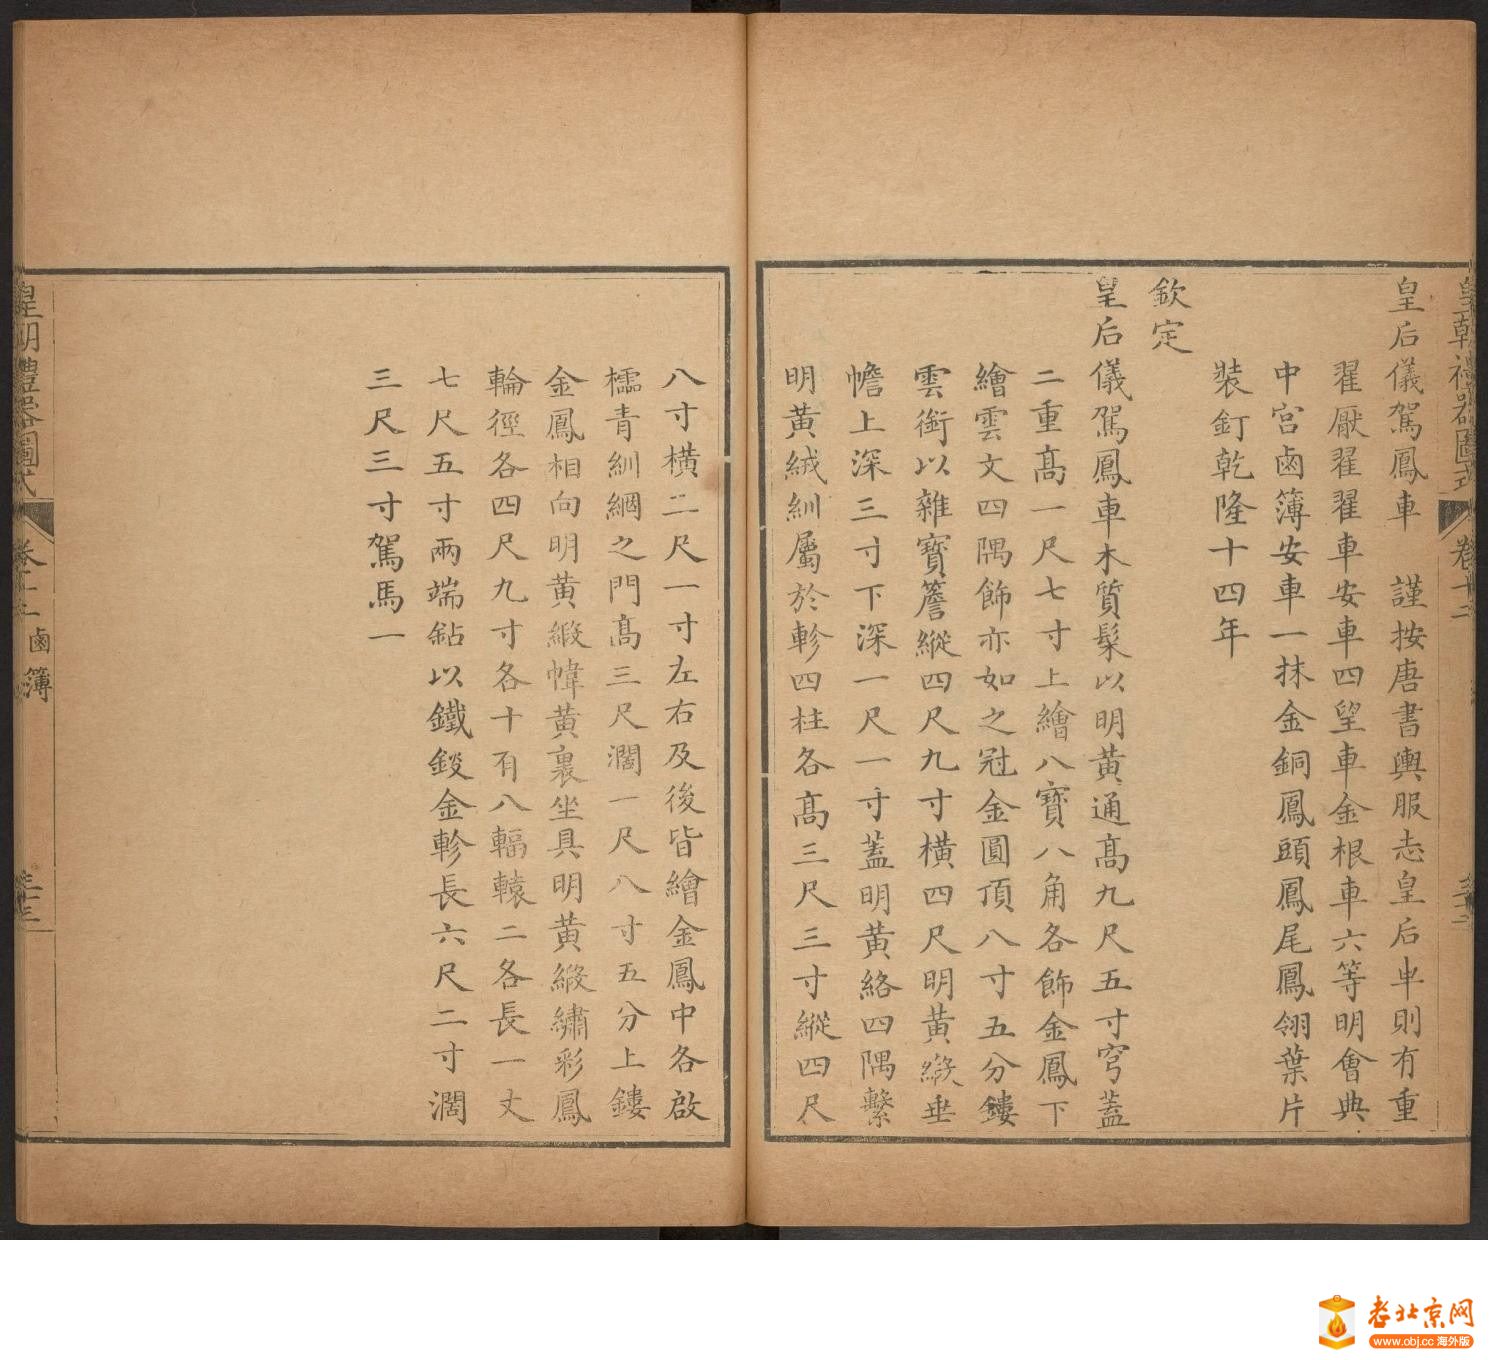 皇朝禮器圖式 卷十二
皇后儀駕鳳車 謹按唐書輿服志皇后車則有重
翟厭翟翟車安車四望車金根車六等明會典
中宮鹵簿安車一抹金銅鳳頭鳳尾鳳翎葉片
裝釘乾隆十四年
欽定
皇后儀駕鳳車木質髹以明黃通高九尺五寸穹蓋
二重高一尺七寸上繪八寶八角各飾金鳳下
繪雲文四隅飾亦如之冠金圓頂八寸五分鏤
雲銜以雜寶簷縱四尺九寸橫四尺明黃緞垂
幨上深三寸下深一尺一寸蓋明黃絡四隅繫
明黃絨紃屬於軫四柱各高三尺三寸縱四尺
八寸橫二尺一寸左右及後皆繪金鳳中各啟
櫺青紃綱之門高三尺濶一尺八寸五分上鏤
金鳳相向明黃緞幃黃裏坐具明黃緞繡彩鳳
輪徑各四尺九寸各十有八輻轅二各長一丈
七尺五寸兩端鈷以鐵鋄金軫長六尺二寸濶
三尺三寸駕馬一
皇朝禮器圖式 卷十二 鹵簿
老北京网
www.obj.cc 海外版